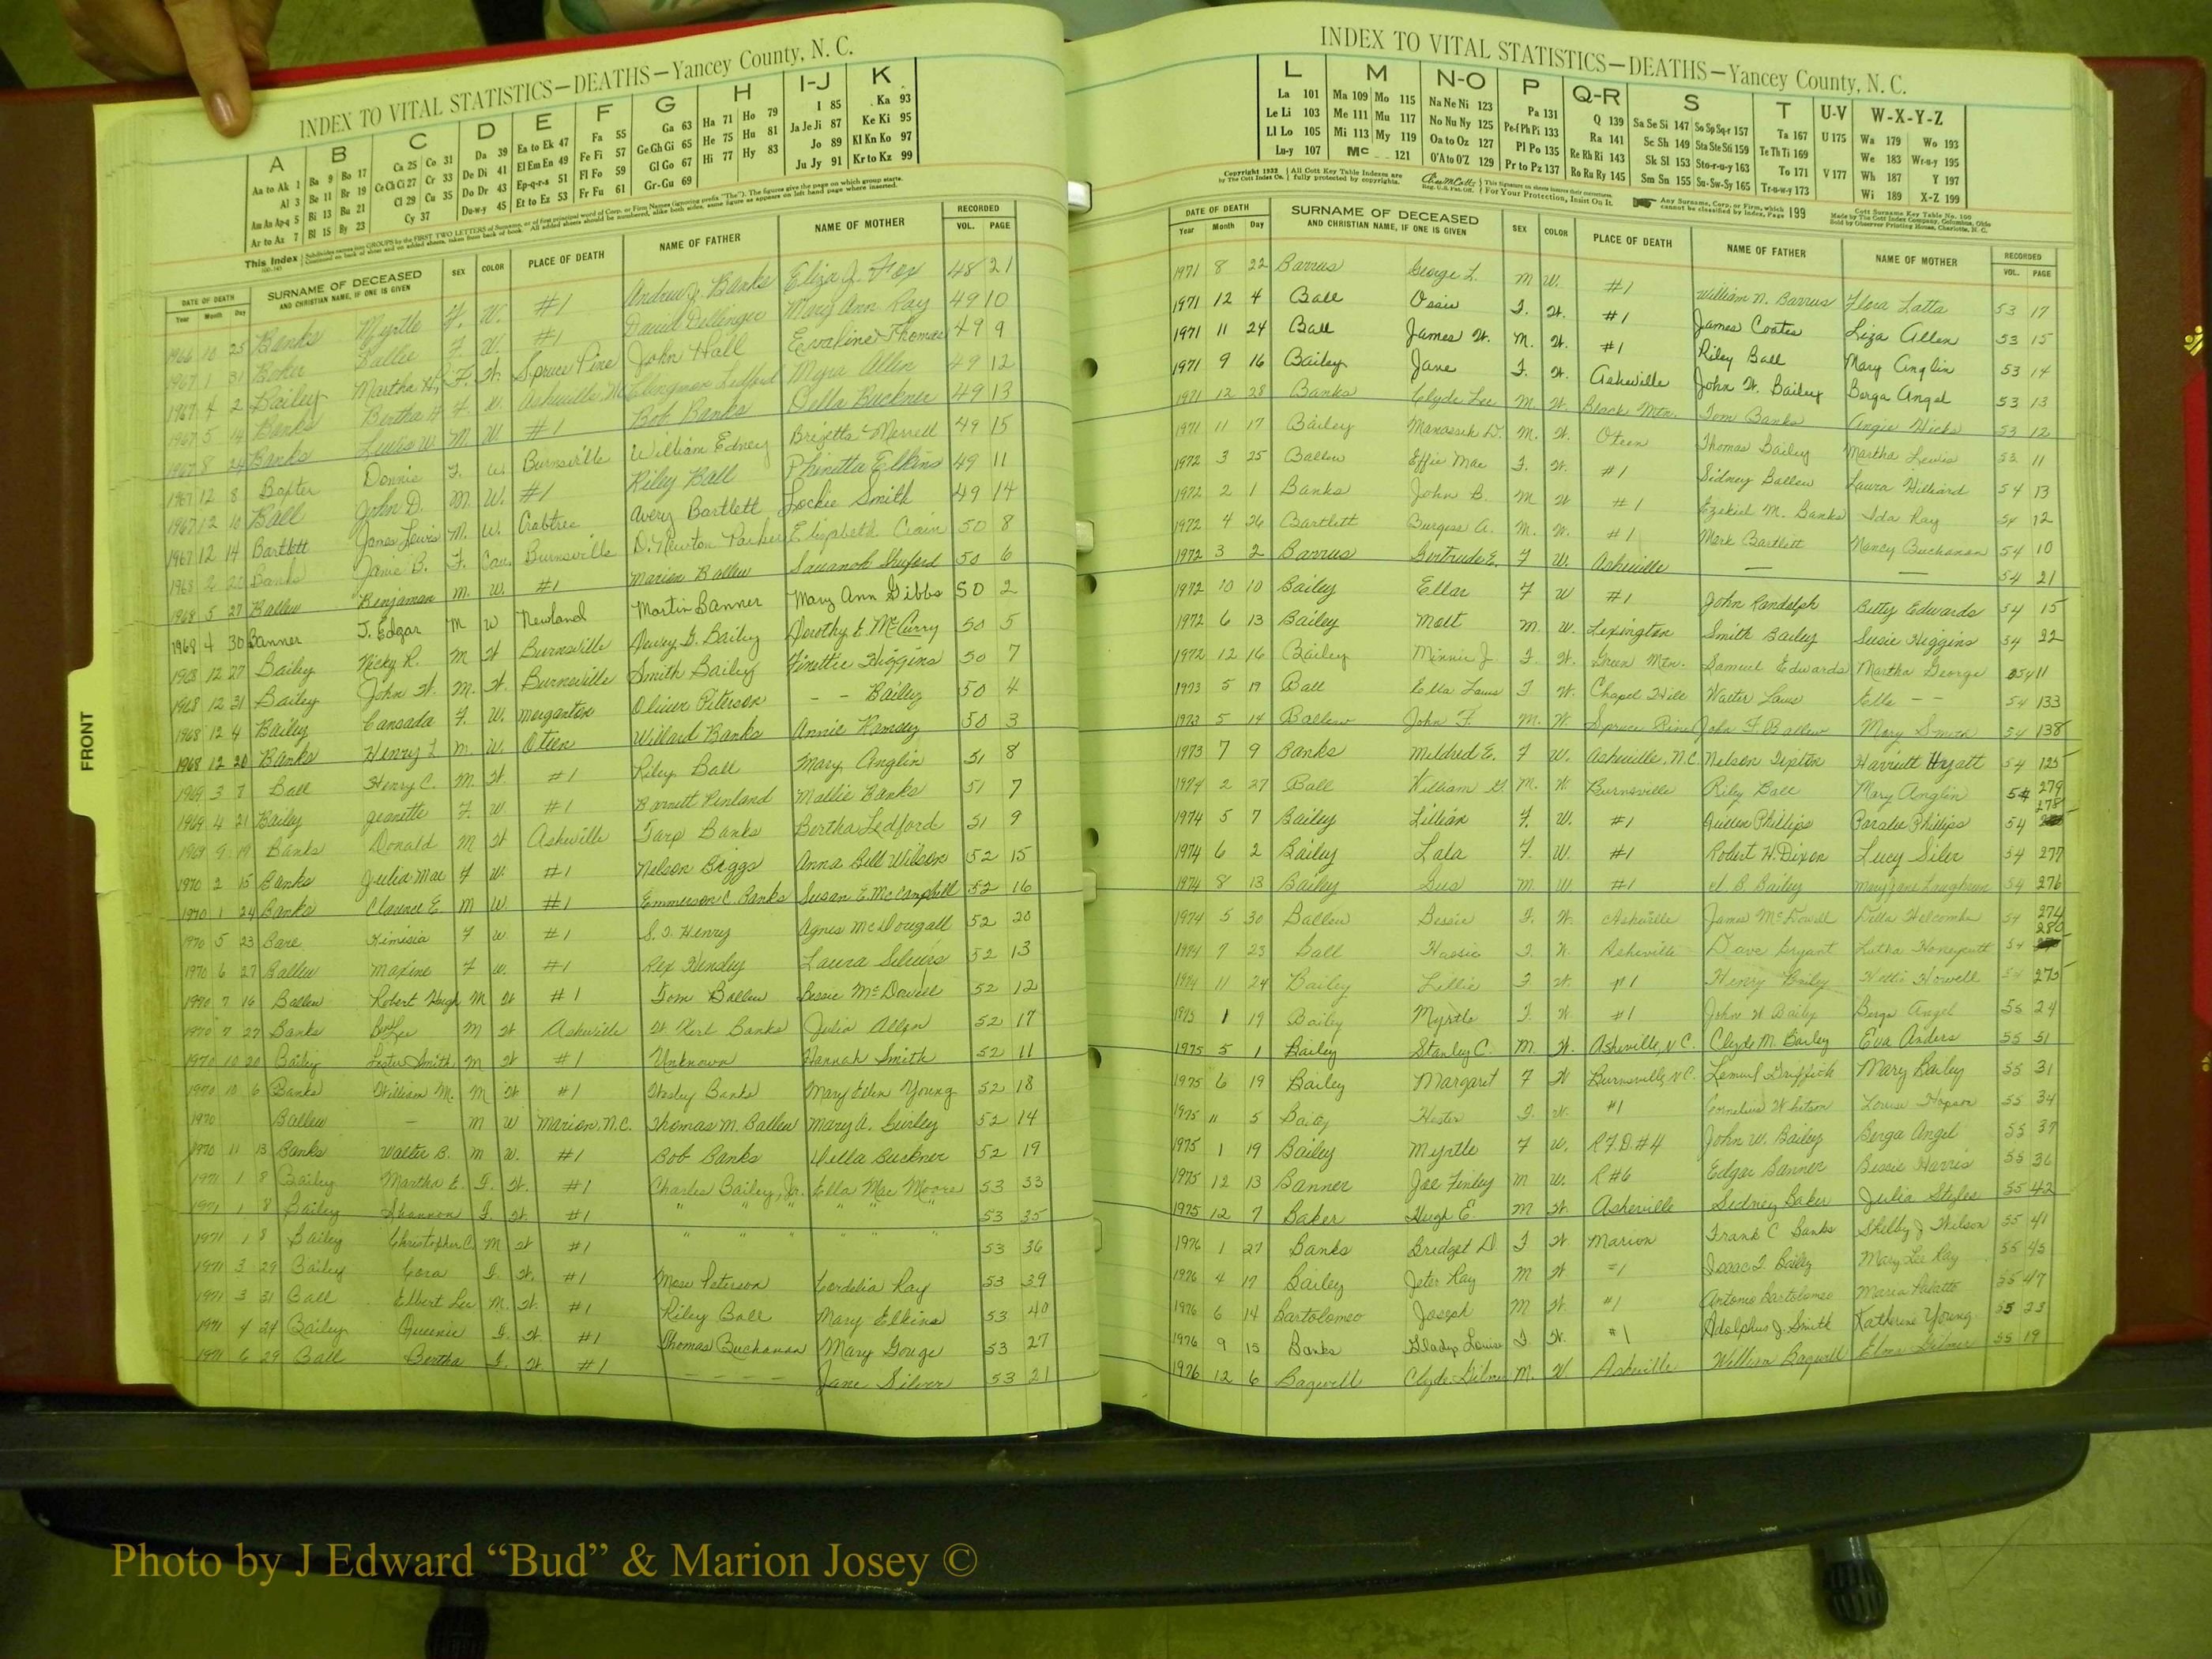 INDEX TO VITAL STATISTICS—DEATHS—Yancey County, N. C.
A B C D E F G H I-J K
Aa to Ak 1 Ba 9 Bo 17 Ca 25 Co 31 Da 39 Ea to Ek 47 Fa 55 Ga 63 Ha 71 Ho 79 I 85 Ka 93
Al 3 Be 11 Br 19 Ce Ch Ci 27 Cr 33 De Di 41 El Em En 49 Fe Fi 57 Ge Gh Gi 65 He 75 Hu 81 Ja Je Ji 87 Ke Ki 95
Am An Ap-q 5 Bi 13 Bu 21 Cl 29 Cu 35 Do Dr 43 Ep-q-r-s 51 Fl Fo 59 Gl Go 67 Hi 77 Hy 83 Jo 89 Kl Kn Ko 97
Ar to Az 7 Bl 15 By 23 Cy 37 Du-w-y 45 Et to Ez 53 Fr Fu 61 Gr-Gu 69 Ju Jy 91 Kr to Kz 99
DATE OF DEATH SURNAME OF DECEASED SEX COLOR PLACE OF DEATH NAME OF FATHER NAME OF MOTHER RECORDED
Year Month Day AND CHRISTIAN NAME, IF ONE IS GIVEN VOL. PAGE
1966 10 25 Banks Myrtle F. W. #1 Andrew J. Banks Eliza J. Fox 48 21
1967 1 31 Boker Hallie F W. #1 David Dellinger Mary Ann Ray 49 10
1967 4 2 Bailey Martha H. F. W. Spruce Pine John Hall Evaline Thomas 49 9
1967 5 14 Banks Bertha F W. Asheville, NC Clingman Ledford Myra Allen 49 12
1967 8 24 Banks Lewis W. M W. #1 Bob Banks Della Buckner 49 13
1967 12 8 Baxter Donnie F. W. Burnsville William Edney Brizetta Merrell 49 15
1967 12 10 Ball John D. M. W. #1 Riley Ball Phinetta Elkins 49 11
1967 12 14 Bartlett James Lewis M. W. Crabtree Avery Bartlett Lockie Smith 49 14
1968 2 Banks Janie B. F. Cau. Burnsville D. Newton Parker Elizabeth Crain 50 8
1968 5 27 Ballew Benjamin M. W. #1 Marion Ballew Savanah Shuford 50 6
1968 4 30 Banner J. Edgar M W Newland Martin Banner Mary Ann Gibbs 50 2
1968 12 27 Bailey Nicky R. M W Burnsville Dewey G. Bailey Dorothy E. McCurry 50 5
1968 12 31 Bailey John W. M. W. Burnsville Smith Bailey Finettie Higgins 50 7
1968 12 4 Bailey Cansada F. W. Morganton Oliver Peterson – – Bailey 50 4
1968 12 20 Banks Henry L M. W. Oteen Willard Banks Annie Ramsey 50 3
1969 3 7 Ball Henry C. M. W. #1 Riley Ball Mary Anglin 51 8
1969 4 21 Bailey Jeanette F. W. #1 Barnett Penland Mallie Banks 51 7
1969 9 19 Banks Donald M W Asheville Tarp Banks Bertha Ledford 51 9
1970 2 15 Banks Julia Mae F W. #1 Nelson Briggs Anna Bell Wilson 52 15
1970 1 24 Banks Clarence E M W. #1 Emmerson C. Banks Susan E. McCampbell 52 16
1970 5 23 Bare Kimisia F W. #1 S. J. Henry Agnes McDougall 52 20
1970 6 27 Ballew Maxine F W. #1 Rex Hensley Laura Silvers 52 13
1970 7 16 Ballew Robert Hugh M W #1 Tom Ballew Bessie McDowell 52 12
1970 7 27 Banks Ben Lee M W Asheville W. Kerl Banks Julia Allen 52 17
1970 10 20 Bailey Lester Smith M W #1 Unknown Hannah Smith 52 11
1970 10 6 Banks William M. M W #1 Wesley Banks Mary Ellen Young 52 18
1970 Ballew – M W Marion, N.C. Thomas M. Ballew Mary A. Gurley 52 14
1970 11 13 Banks Walter B. M W. #1 Bob Banks Della Buckner 52 19
1971 1 8 Bailey Martha E. F. W. #1 Charles Bailey, Jr. Ella Mae Moore 53 33
1971 1 8 Bailey Shannon F. W. #1 " " " " " " 53 35
1971 1 8 Bailey Christopher C. M W #1 " " " " " " 53 36
1971 3 29 Bailey Cora F. W. #1 Mose Peterson Cordelia Ray 53 39
1971 3 31 Ball Elbert Lee M. W. #1 Riley Ball Mary Elkins 53 40
1971 4 24 Bailey Queenie F. W. #1 Thomas Buchanan Mary Gouge 53 27
1971 6 29 Ball Bertha F. W. #1 – – – – Jane Silver 53 21
FRONT
INDEX TO VITAL STATISTICS—DEATHS—Yancey County, N. C.
L M N-O P Q-R S T U-V W-X-Y-Z
La 101 Ma 109 Mo 115 Na Ne Ni 123 Pa 131 Q 139 Sa Se Si 147 So Sp Sq-r 157 Ta 167 U 175 Wa 179 Wo 193
Le Li 103 Me 111 Mu 117 No Nu Ny 125 Pe-f Ph Pi 133 Ra 141 Sc Sh 149 Sta Ste Sti 159 Te Th Ti 169 We 183 Wr-u-y 195
Ll Lo 105 Mi 113 My 119 Oa to Oz 127 Pl Po 135 Re Rh Ri 143 Sk Sl 153 Sto-r-u-y 163 To 171 V 177 Wh 187 Y 197
Lu-y 107 Mc 121 O'A to O'Z 129 Pr to Pz 137 Ro Ru Ry 145 Sm Sn 155 Su-Sw-Sy 165 Tr-u-w-y 173 Wi 189 X-Z 199
Copyright 1932 by The Cott Index Co. All Cott Key Table Indexes are fully protected by copyrights. For Your Protection, Insist On It. Any Surname, Corp. or Firm, which cannot be classified by Index, Page 199
Cott Surname Key Table No. 100 Made by The Cott Index Company, Columbus, Ohio Sold by Observer Printing House, Charlotte, N. C.
DATE OF DEATH SURNAME OF DECEASED SEX COLOR PLACE OF DEATH NAME OF FATHER NAME OF MOTHER RECORDED
Year Month Day AND CHRISTIAN NAME, IF ONE IS GIVEN VOL. PAGE
1971 8 22 Barrus George L. M W. #1 William N. Barrus Flora Latta 53 17
1971 12 4 Ball Ossie F. W. #1 James Coates Liza Allen 53 15
1971 11 24 Ball James W. M. W. #1 Riley Ball Mary Anglin 53 14
1971 9 16 Bailey Jane F. W. Asheville John W. Bailey Berga Angel 53 13
1971 12 28 Banks Clyde Lee M. W. Black Mtn. Tom Banks Angie Hicks 53 12
1971 11 17 Bailey Manasseh D. M. W. Oteen Thomas Bailey Martha Lewis 53 11
1972 3 25 Ballew Effie Mae F. W. #1 Sidney Ballew Laura Hilliard 54 13
1972 2 1 Banks John B. M W #1 Ezekiel M. Banks Ida Ray 54 12
1972 4 26 Bartlett Burgess A. M. W. #1 Mark Bartlett Nancy Buchanan 54 10
1972 3 2 Barrus Gertrude E. F W. Asheville — — 54 21
1972 10 10 Bailey Ellar F W #1 John Randolph Betty Edwards 54 15
1972 6 13 Bailey Mott M W. Lexington Smith Bailey Susie Higgins 54 22
1972 12 16 Bailey Minnie J. F. W. Green Mtn. Samuel Edwards Martha George 54 11
1973 5 19 Ball Ella Laws F W. Chapel Hill Walter Laws Ella – – 54 133
1973 5 14 Ballew John F. M. W Spruce Pine John F. Ballew Mary Smith 54 138
1973 7 9 Banks Mildred E. F W. Asheville, N.C. Nelson Tipton Harriett Hyatt 54 125
1974 2 27 Ball William G. M. W Burnsville Riley Ball Mary Anglin 54 279
1974 5 7 Bailey Lillian F. W. #1 Julien Phillips Coralie Phillips 54 278
1974 6 2 Bailey Lata F. W. #1 Robert H. Dixon Lucy Siler 54 277
1974 8 13 Bailey Gus M W. #1 Bailey Mary Jane Laughrun 54 276
1974 5 30 Ballew Bessie F. W. Asheville James McDowell Della Holcombe 54 274
1974 7 23 Ball Hassie F. W. Asheville Dave Bryant Latha Honeycutt 54 280
1974 11 24 Bailey Lillie F W. #1 Henry Bailey Hettie Howell 54 275
1975 1 19 Bailey Myrtle F. W #1 John W Bailey Berga Angel 55 24
1975 5 1 Bailey Stanley C. M. W. Asheville, N.C. Clyde M. Bailey Eva Anders 55 51
1975 6 19 Bailey Margaret F W Burnsville, N.C. Lemuel Griffith Mary Bailey 55 31
1975 11 5 Bailey Hester F. W. #1 Cornelius Whitson Louise Hopson 55 34
1975 1 19 Bailey Myrtle F W. R.F.D. #4 John W. Bailey Berga Angel 55 37
1975 12 13 Banner Joe Finley M W. R #6 Edgar Banner Bessie Harris 55 36
1975 12 7 Baker Hugh E. M W. Asheville Sidney Baker Julia Styles 55 42
1976 1 27 Banks Bridget D. F W. Marion Frank C Banks Shelby J Wilson 55 41
1976 4 17 Bailey Jeter Ray M W. #1 Isaac L Bailey Mary Lee Ray 55 45
1976 6 14 Bartolomeo Joseph M W. #1 Antonio Bartolomeo Maria 55 47
1976 9 13 Banks Gladys Louise F W. #1 Adolphus J. Smith Katherine Young 55 23
1976 12 6 Bagwell Clyde M. W Asheville William Bagwell 55 19
Photo by J Edward “Bud” & Marion Josey ©